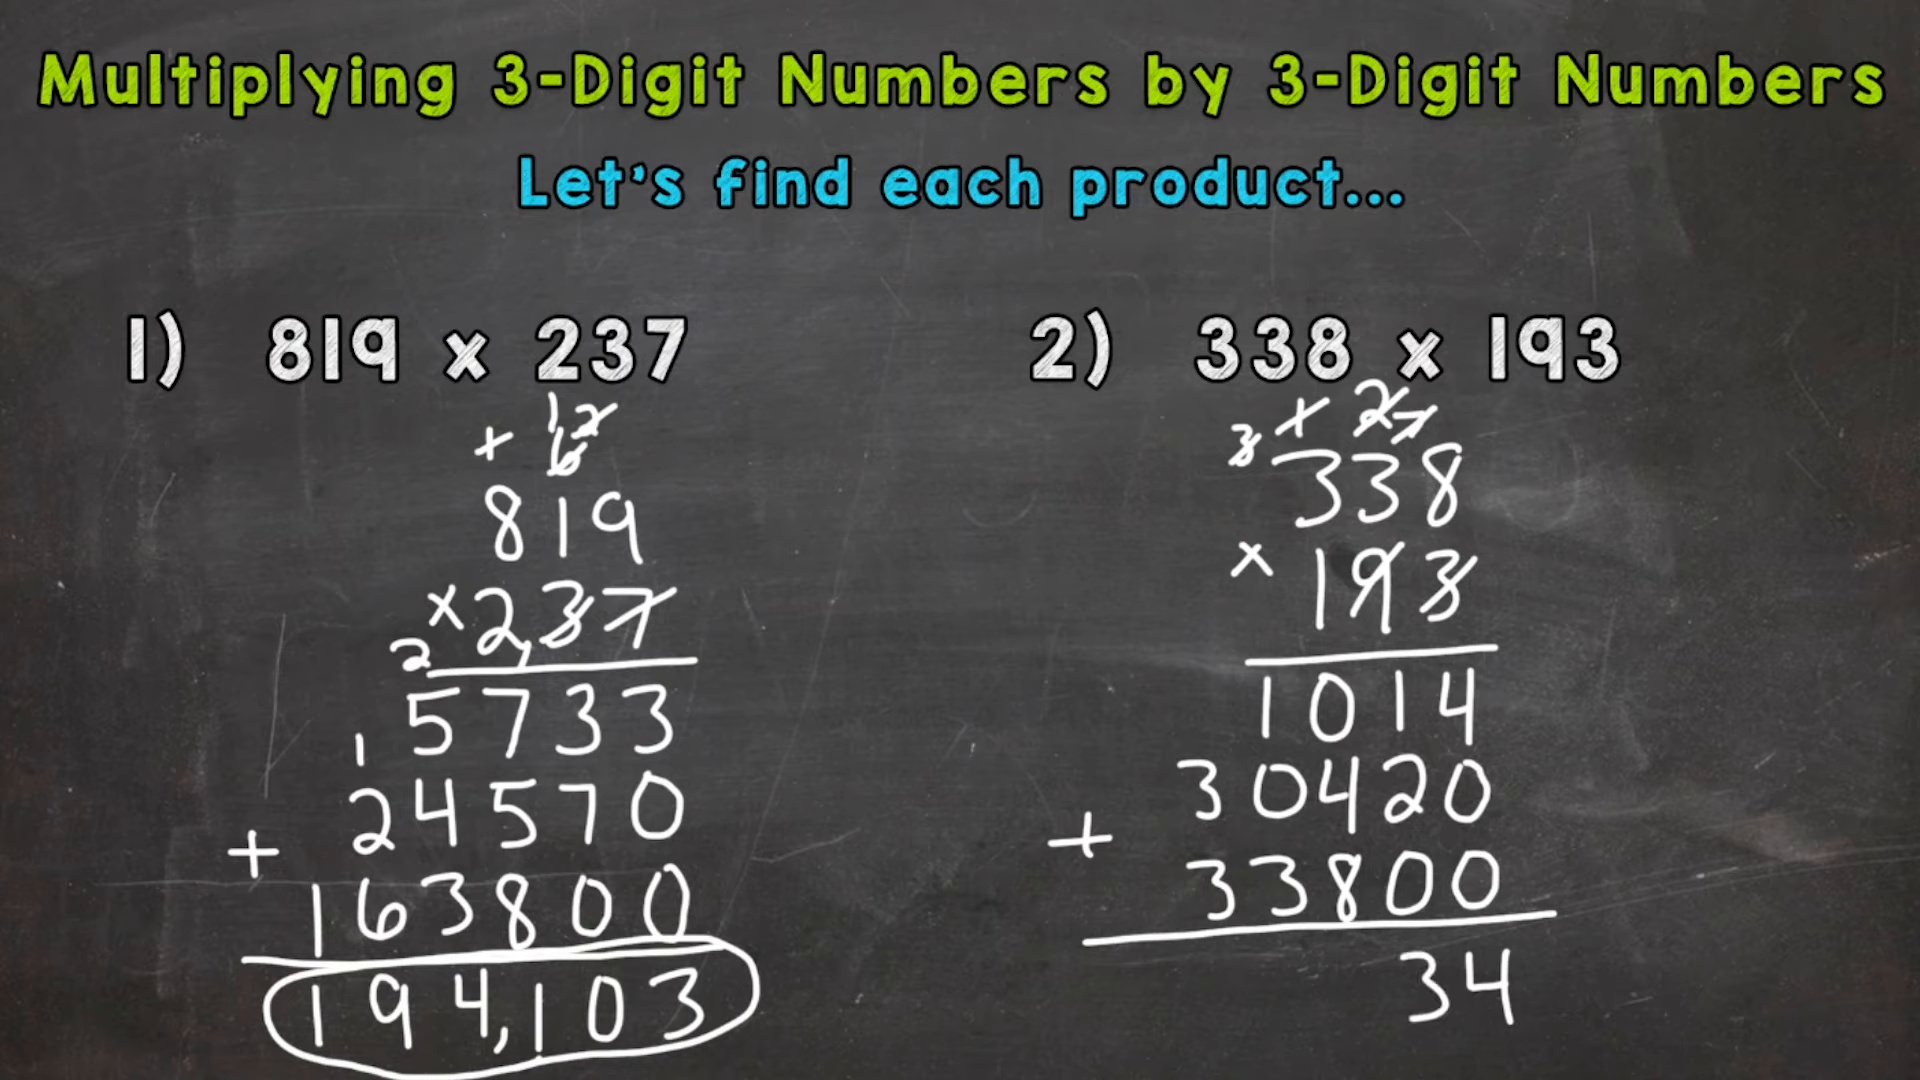 Multiplying 3-Digit Numbers by 3-Digit Numbers
Let's find each product...
1) 819 x 237
1 2
+ 6
819
x 2,37
2
5733
1
24570
+
163800
194,103
2) 338 x 193
1 2 7
3
338
x 193
1014
30420
+
33800
34